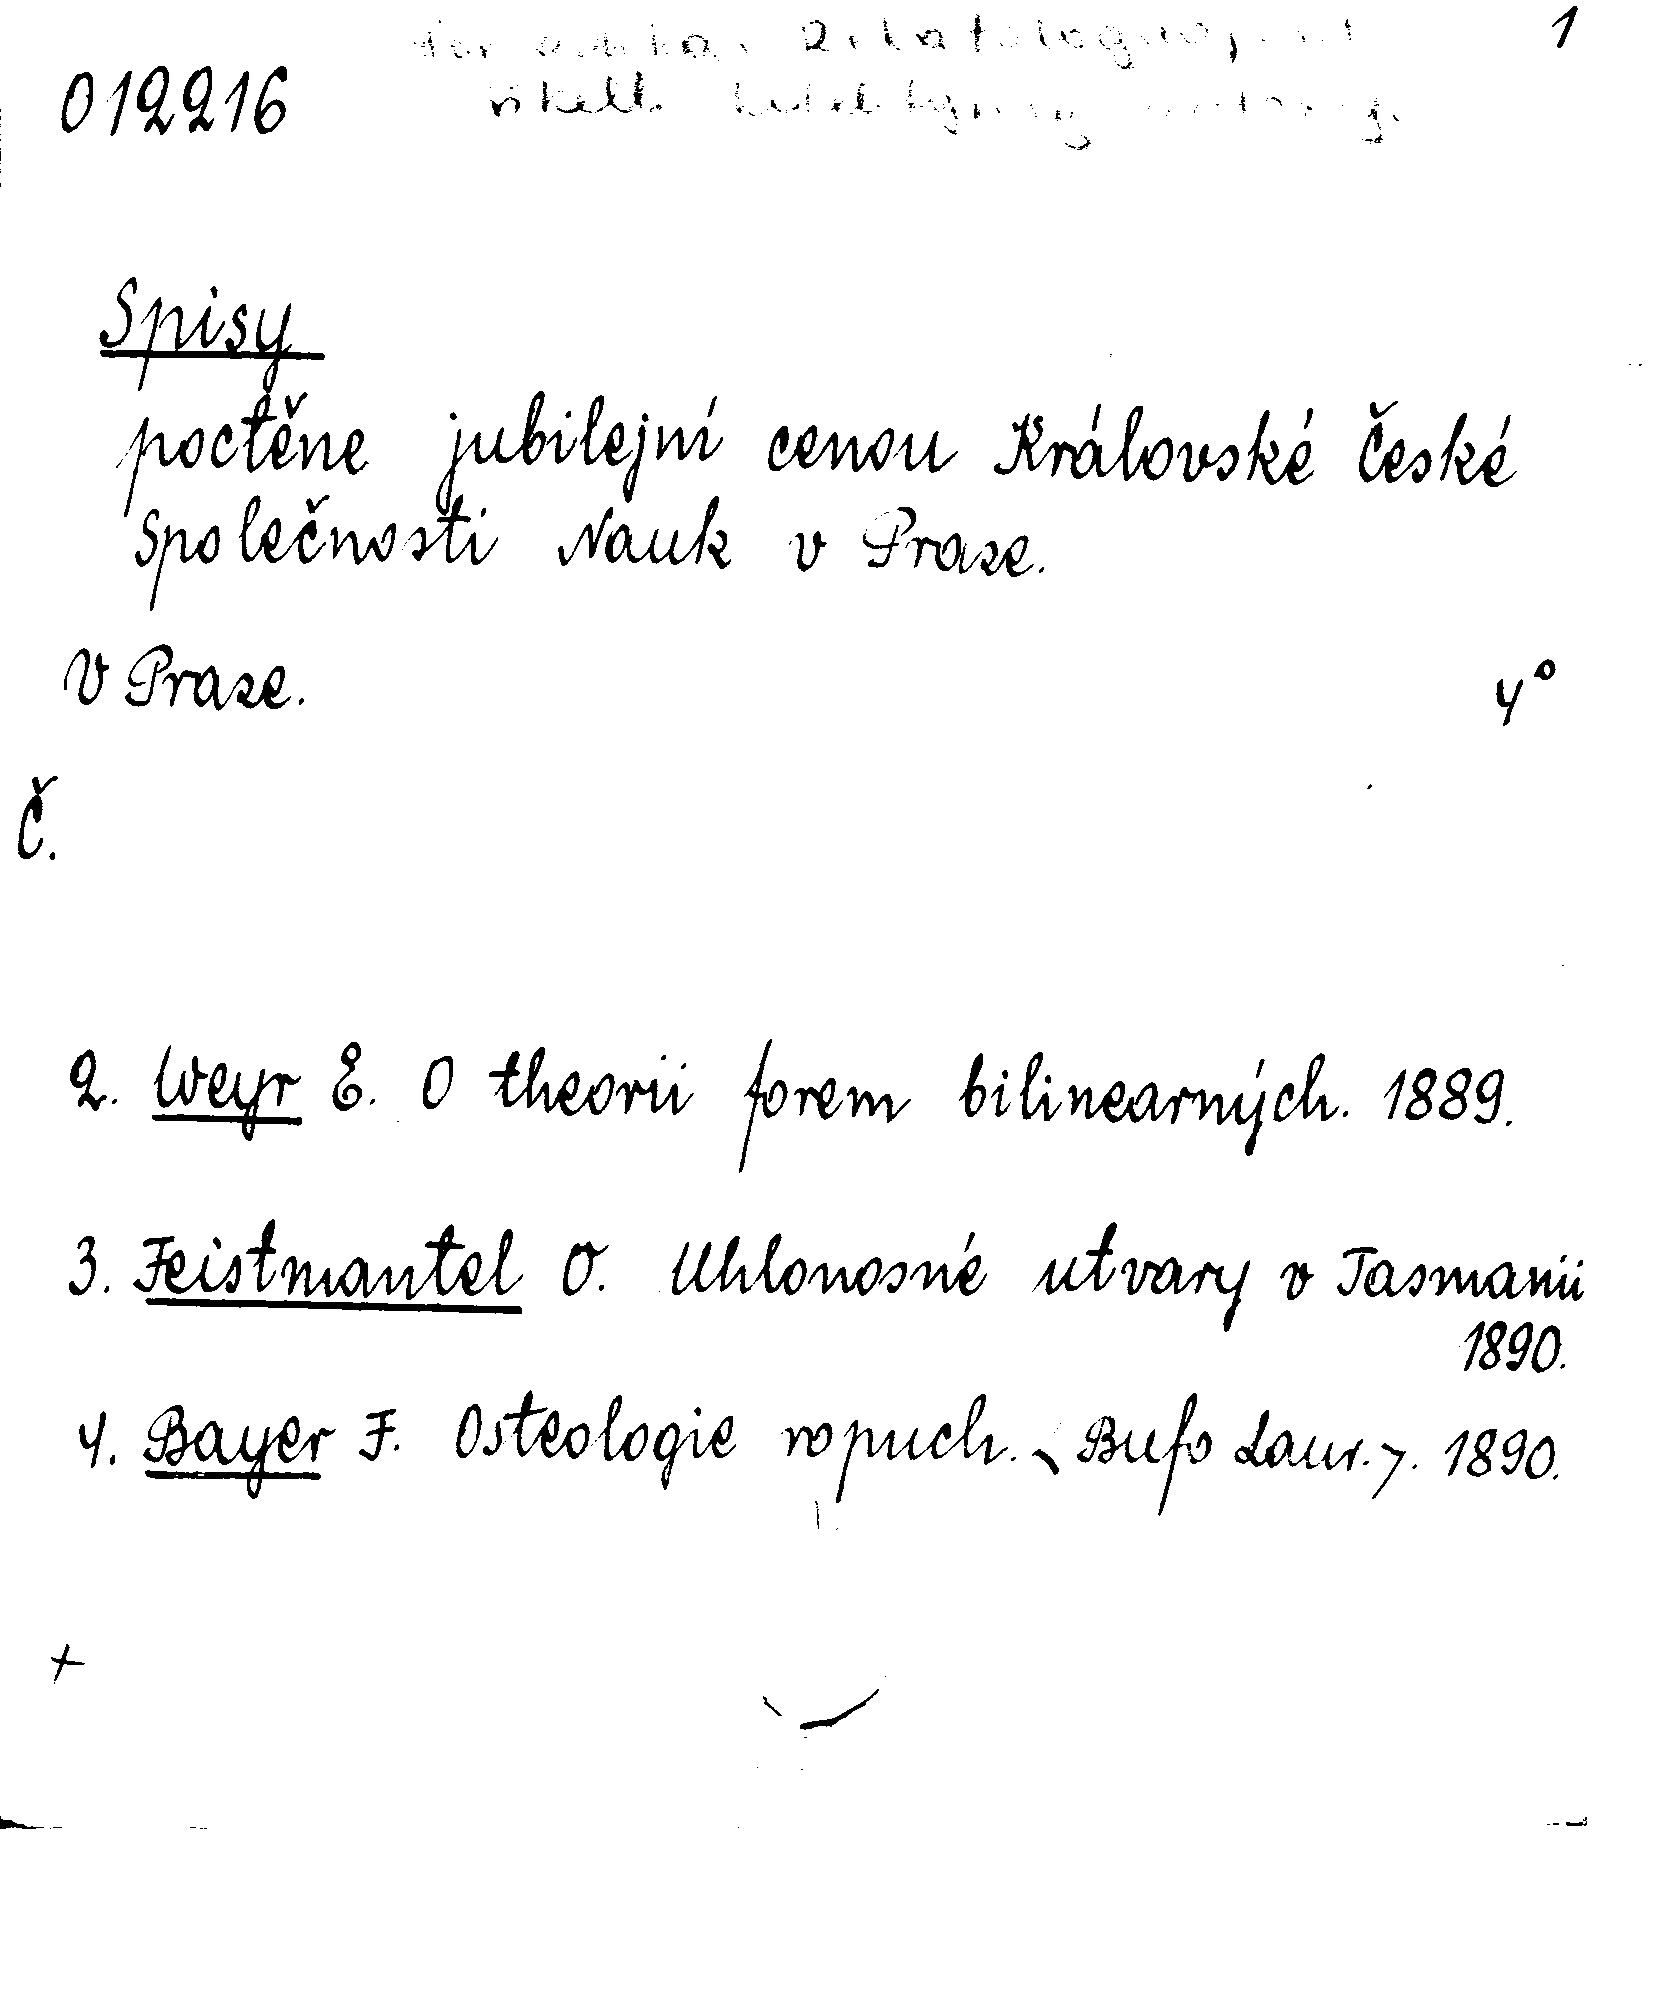 1
012216
Spisy
poctěne jubilejní cenou Královské České
Společnosti Nauk v Praze.
V Praze. 4°
Č.
2. Weyr E. O theorii forem bilinearných. 1889.
3. Feistmantel O. Uhlonosné utvary v Tasmanii
1890.
4. Bayer F. Osteologie ropuch. (Bufo Laur.). 1890.
+